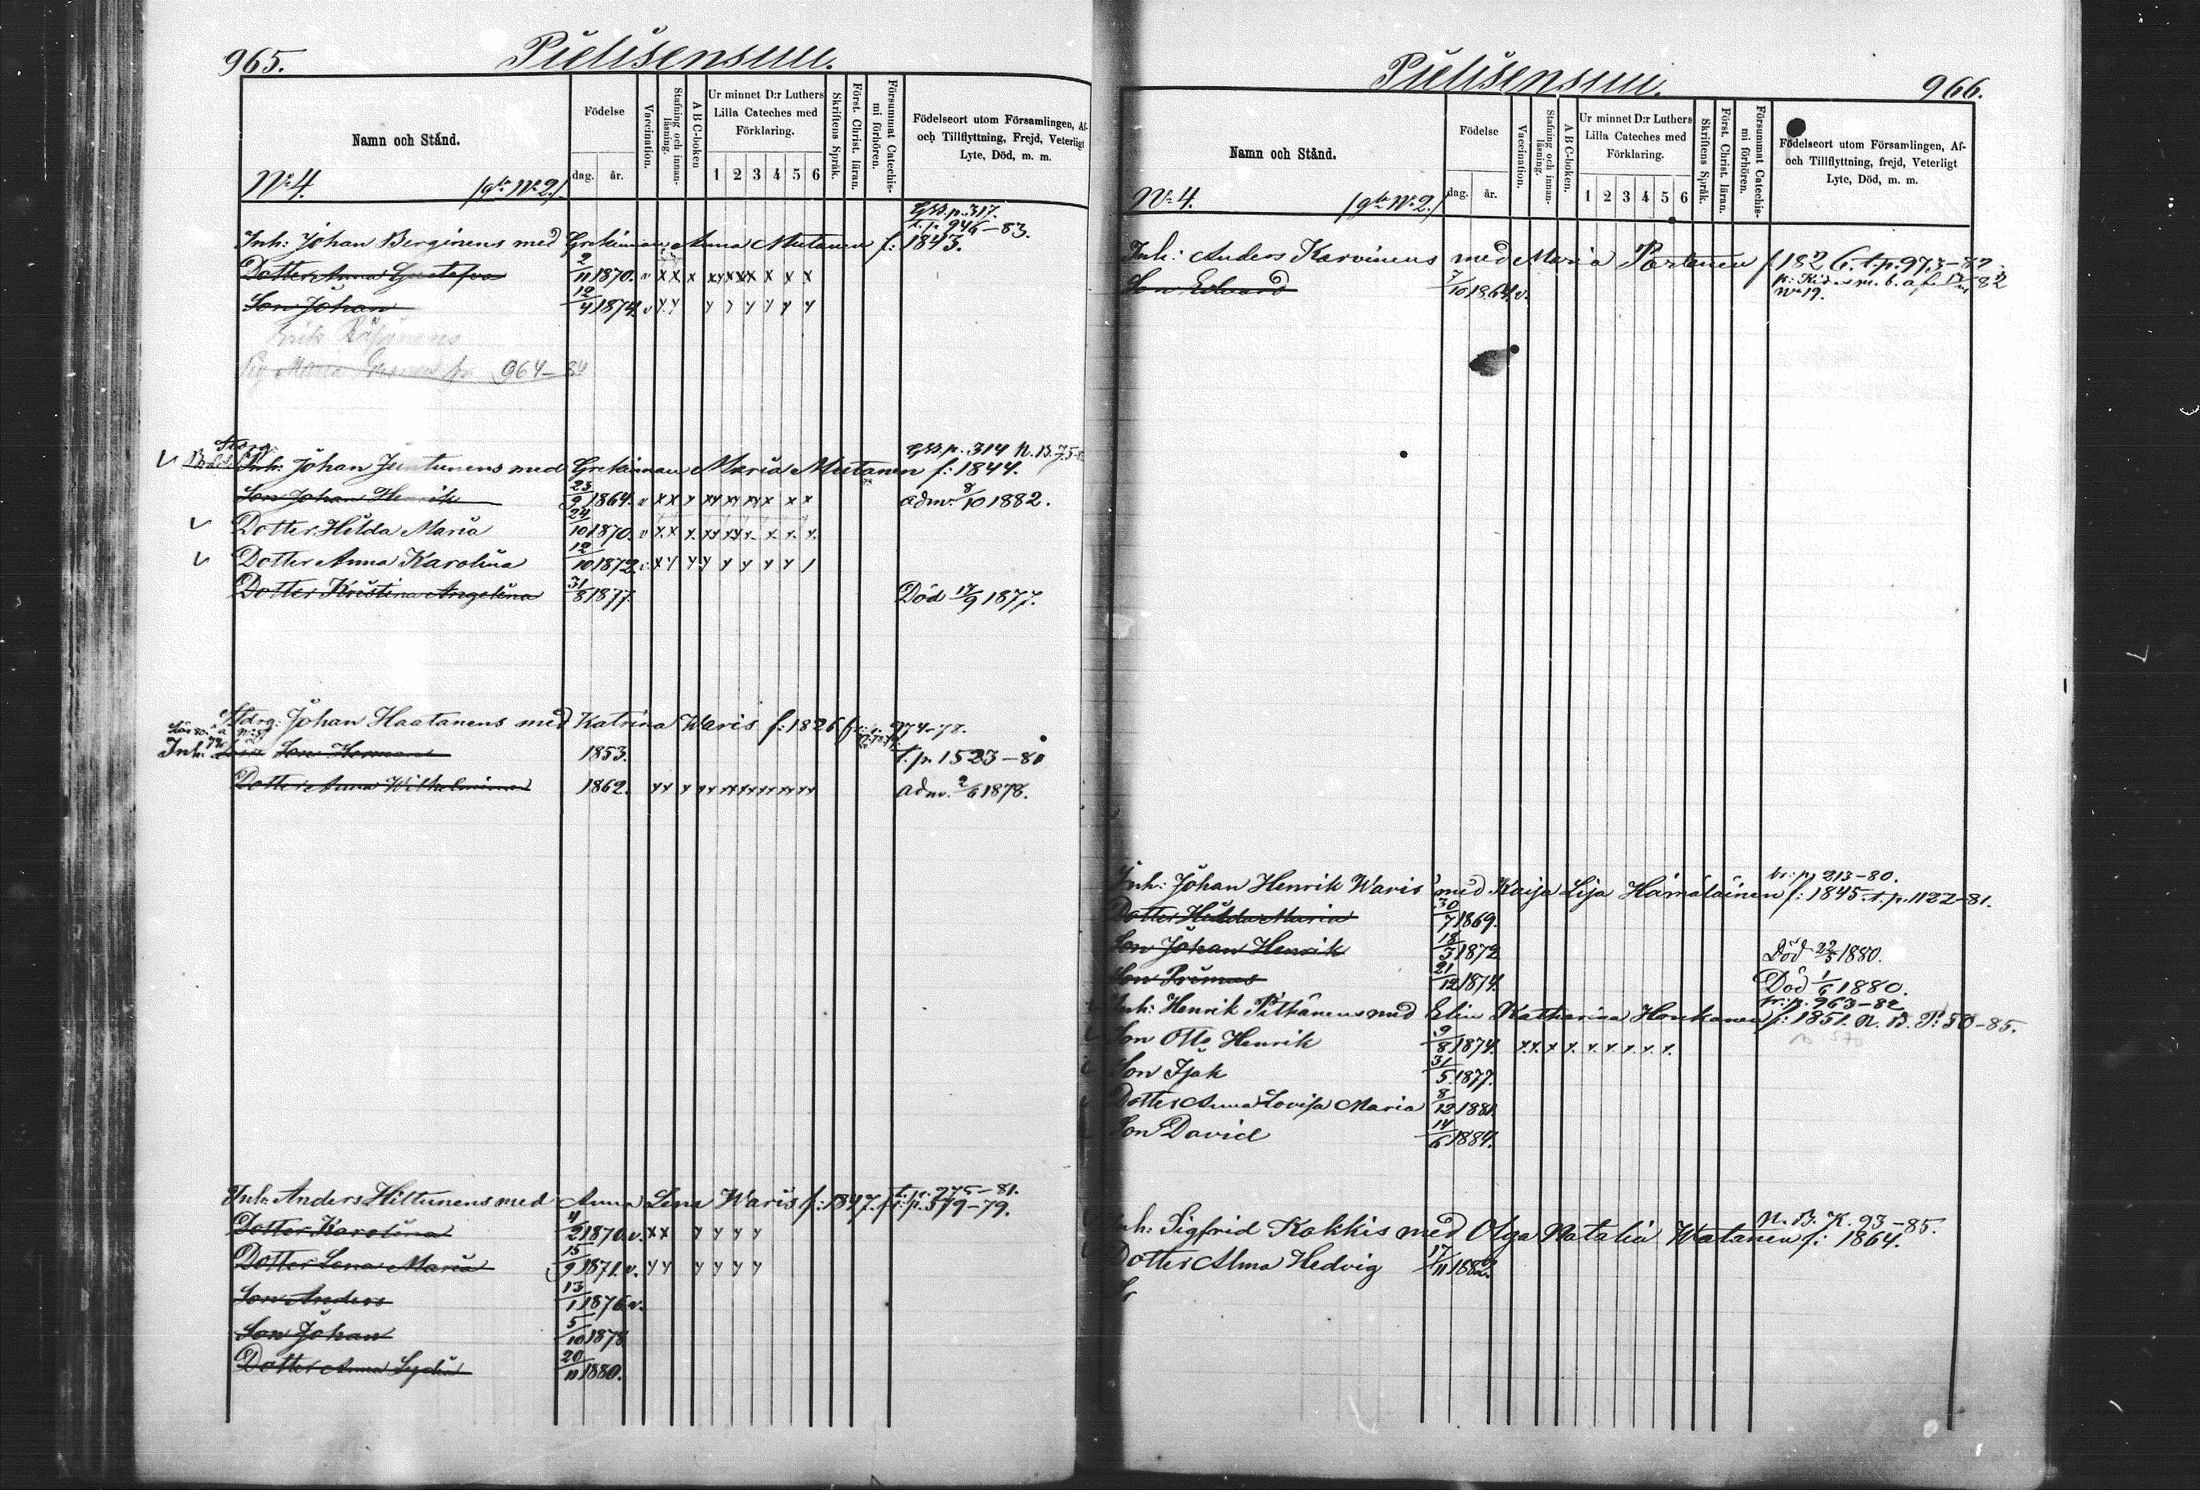 965.
Pielisensuu.
Namn och Stånd.
Födelse
dag. år.
Vaccination.
Stafning och innanläsning.
A B C-boken
Ur minnet D:r Luthers Lilla Cateches med Förklaring.
1 2 3 4 5 6
Skriftens Språk.
Först. Christ. läran.
Försummat Catechismi förhören.
Födelseort utom Församlingen, Af- och Tillflyttning, Frejd, Veterligt Lyte, Död, m. m.
N:o 4. /gla N:o 2./
p. 317.
t. p. 945-83.
Inh: Johan Berginens med Grekinnan Anna Mutanen f: 1843.
Dotter Anna Gustafva 2/11 1870. v x x x x x x x x x x
Son Johan 12/4 1874. v
Erik
Maria 964-84
p. 314 N. B. 75
Inh: Johan Juntunens med Grekinnan Maria Mutanen f: 1844.
Son Johan Henrik 23/9 1864. v adm. 8/10 1882.
Dotter Hilda Maria 24/10 1870. v
Dotter Anna Karolina 12/10 1872. v
Dotter Kristina Angelina 31/8 1877. Död 17/9 1877.
Johan Haatanens med Katrina Waris f: 1826 974-77.
Inh: Son Herman 1853. t. p. 1523-81
Dotter Anna Wilhelmina 1862. adm. 2/6 1878.
Inh: Anders Hiltunens med Anna Lena Waris f: 1847. fr: p. 579-79.
Dotter Karolina 4/2 1870. v.
Dotter Lena Maria 15/9 1871. v.
Son Anders 13/1 1876. v.
Son Johan 5/10 1878
Dotter Anna Lydia 20/11 1880.
Pielisensuu.
966.
Namn och Stånd.
Födelse
dag. år.
Vaccination.
Stafning och innanläsning.
A B C-boken.
Ur minnet D:r Luthers Lilla Cateches med Förklaring.
1 2 3 4 5 6
Skriftens Språk.
Först. Christ. läran.
Försummat Catechismi förhören.
Födelseort utom Församlingen, Af- och Tillflyttning, frejd, Veterligt Lyte, Död, m. m.
N:o 4. /gla N:o 2./
Inh: Anders Karvinens med Maria Partanen f. 1826. t. p. 973-82.
Son Edvard 7/10 1864. v.
N:o 19.
fr: p. 213-80.
Inh: Johan Henrik Waris med Kaija Lisa Hämäläinen f: 1845. t. p. 1122-81.
Dotter Hilda Maria 30/7 1869.
Son Johan Henrik 18/3 1872 Död 22/5 1880.
Son Primus 21/12 1874. Död 1/6 1880.
fr: p. 963-82
Inh: Henrik Pitkänens med Elin Katharina Honkanen f: 1851. N. B. P. 50-85.
Son Otto Henrik 9/8 1874.
Son Isak 31/5 1877.
Dotter Anna Lovisa Maria 8/12 1881.
Son David 14/6 1884.
N. B. K. 93-85.
Inh: Sigfrid Kokkis med Olga Natalia Watanen f: 1864.
Dotter Alma Hedvig 17/11 1882.